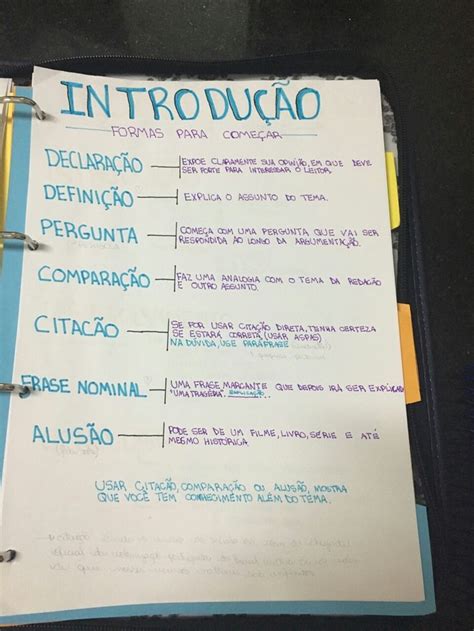 INTRODUÇÃO
FORMAS PARA COMEÇAR
DECLARAÇÃO
EXPOE CLARAMENTE SUA OPINIÃO, EM QUE DEVE
SER FORTE PARA INTERESSAR O LEITOR.
DEFINIÇÃO
EXPLICA O ASSUNTO DO TEMA.
PERGUNTA
COMEÇA COM UMA PERGUNTA QUE VAI SER
RESPONDIDA AO LONGO DA ARGUMENTAÇÃO.
COMPARAÇÃO
FAZ UMA ANALOGIA COM O TEMA DA REDAÇÃO
E OUTRO ASSUNTO.
CITACÃO
SE FOR USAR CITAÇÃO DIRETA, TENHA CERTEZA
SE ESTARÁ CORRETA (USAR ASPAS)
NA DÚVIDA, USE PARÁFRASE
FRASE NOMINAL
UMA FRASE MARCANTE QUE DEPOIS IRÁ SER EXPLICADA
"UMA TRAGÉDIA". EXPLICAÇÃO
ALUSÃO
PODE SER DE UM FILME, LIVRO, SÉRIE E ATÉ
MESMO HISTÓRICA.
USAR CITAÇÃO, COMPARAÇÃO OU ALUSÃO, MOSTRA
QUE VOCÊ TEM CONHECIMENTO ALÉM DO TEMA.